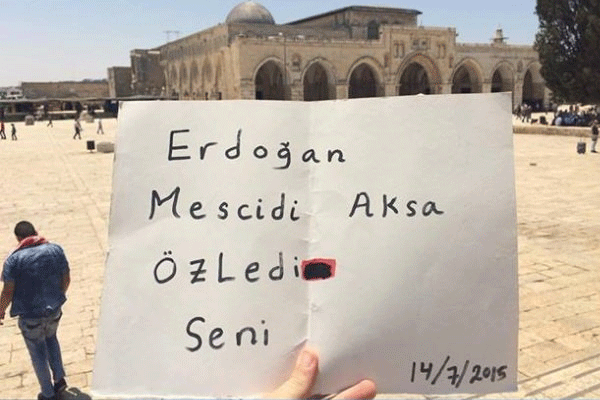 Erdoğan
Mescidi Aksa
ÖZLedi
Seni
14/7/2015